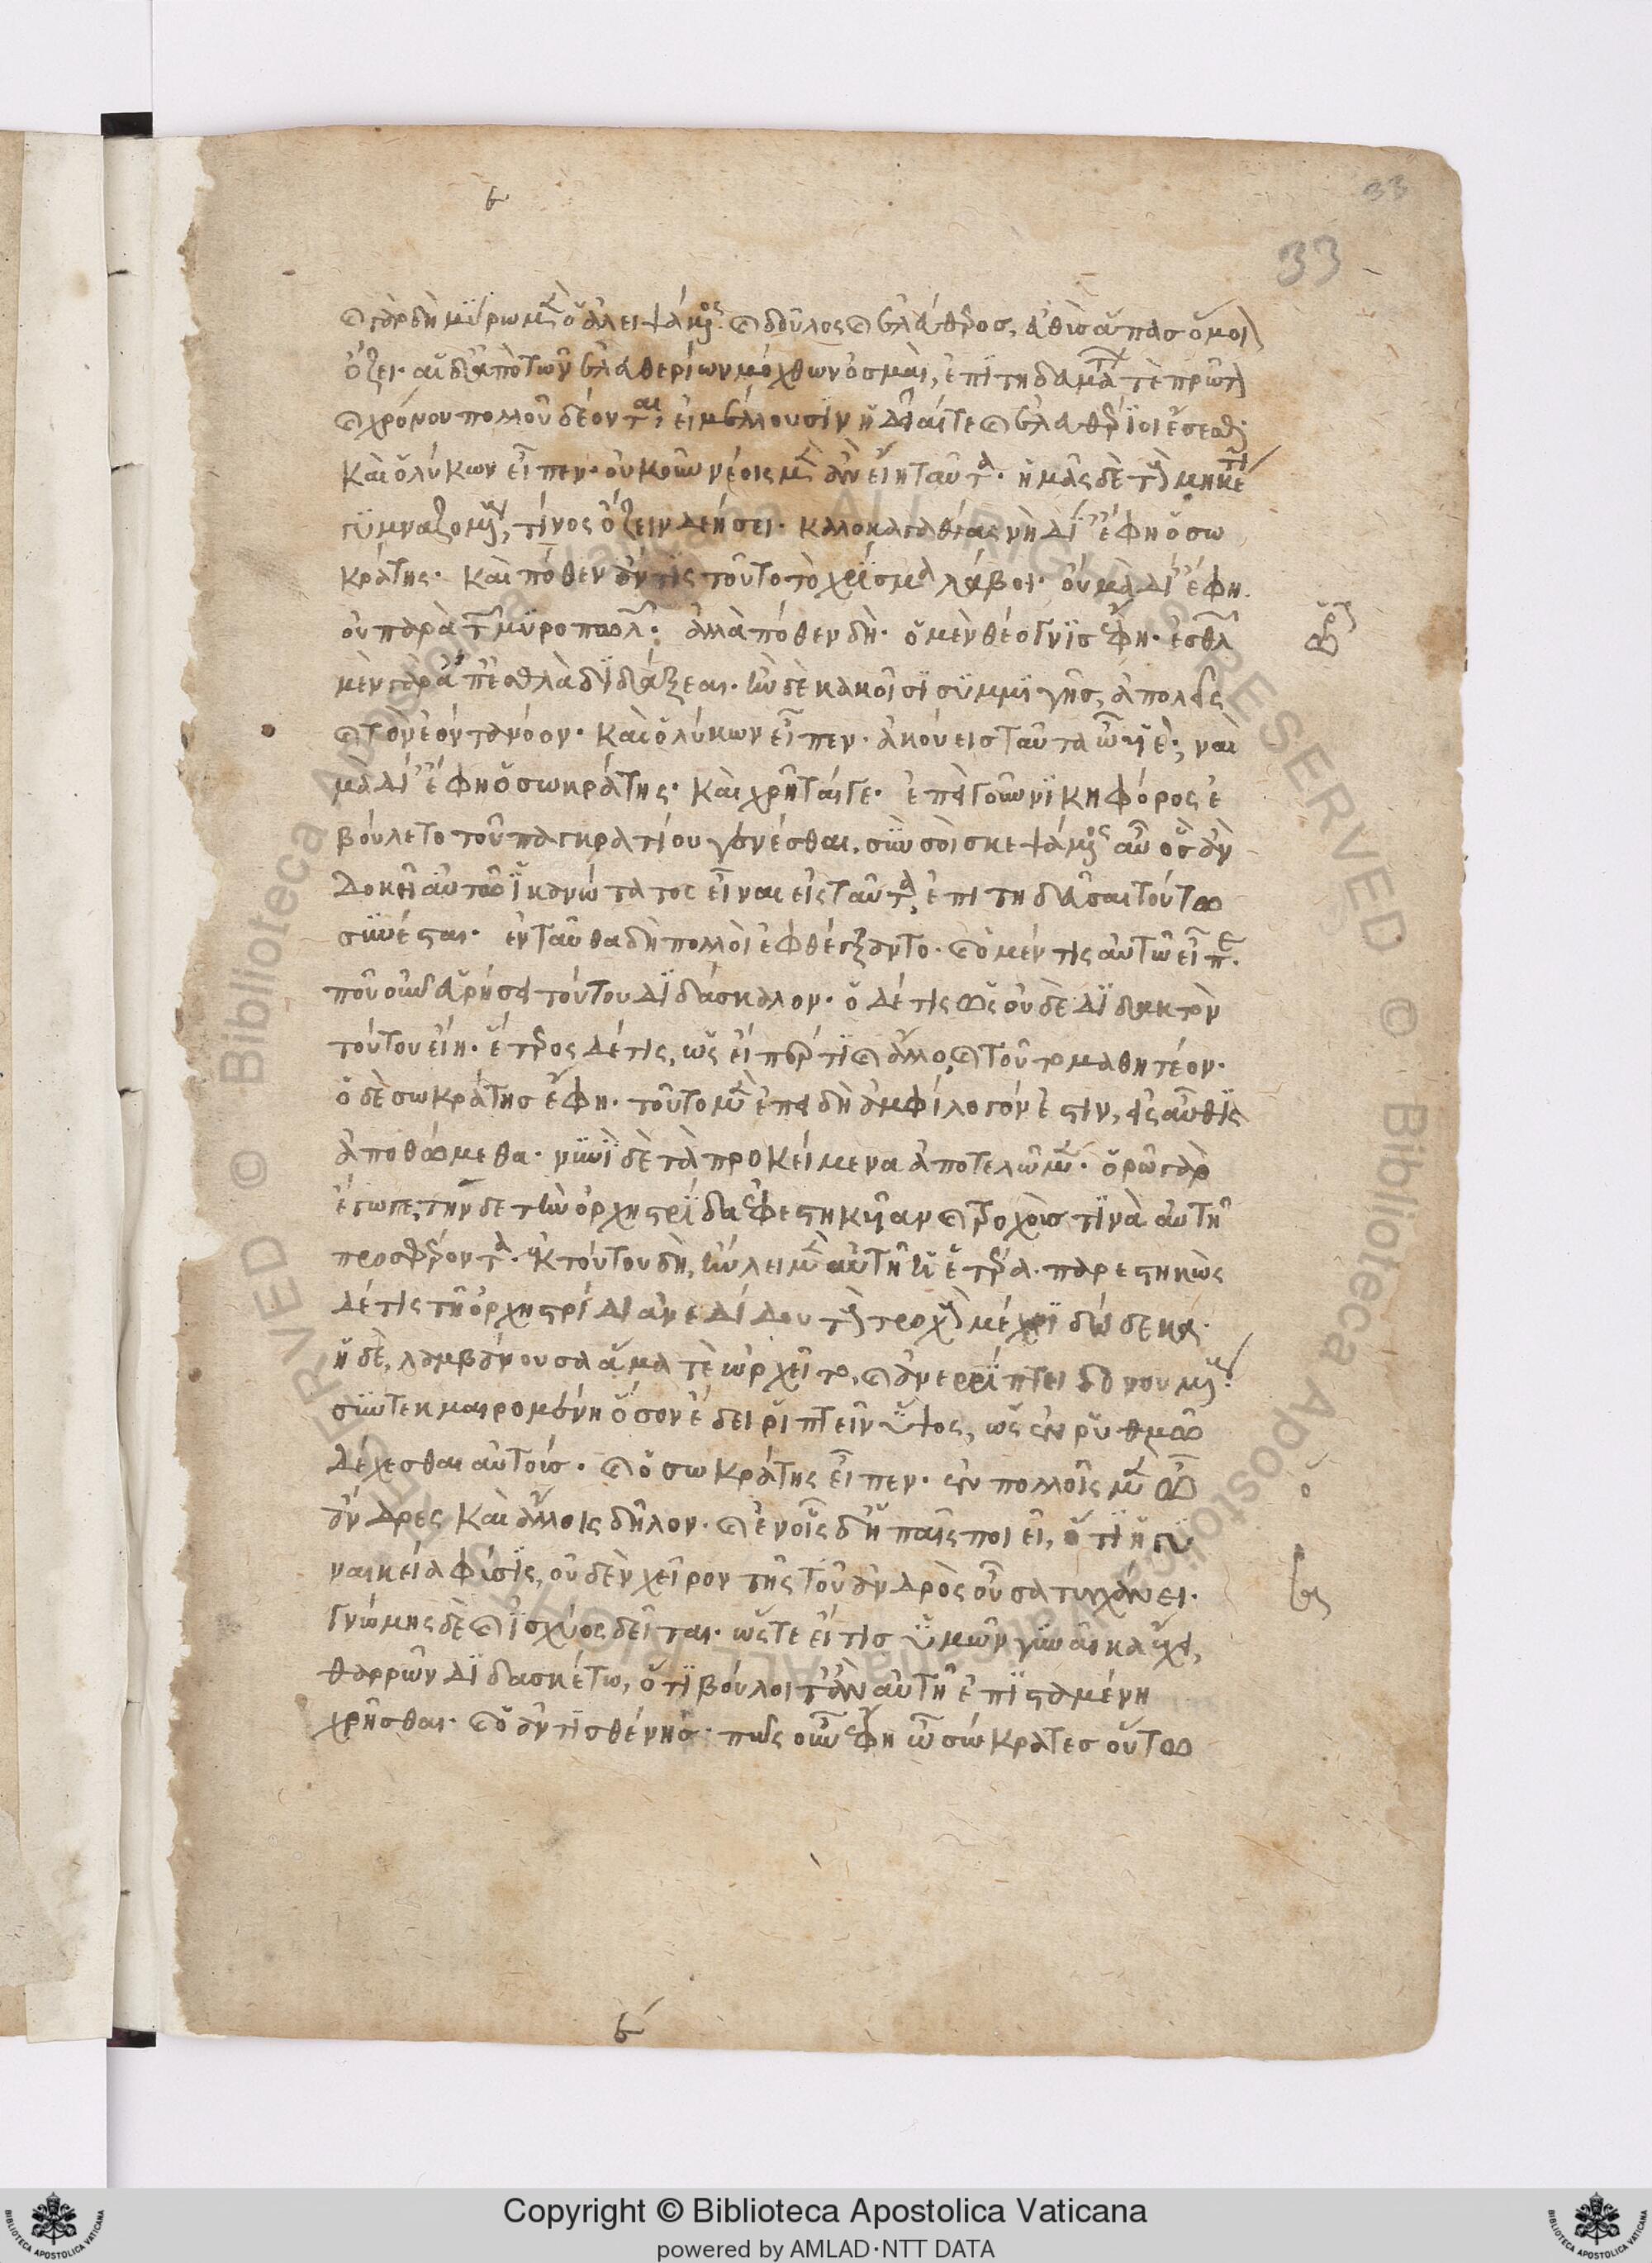 33
33
καὶ γὰρ δὴ μύρω μὲν ὁ ἀλειψάμενος καὶ δοῦλος καὶ ἐλεύθερος, εὐθὺς ἅπας ὅμοιον
ὄζει· αἱ δ' ἀπὸ τῶν ἐλευθερίων μόχθων ὀσμαὶ, ἐπιτηδευμάτων τὲ πρῶτον
καὶ χρόνου πολλοῦ δέονται, εἰ μέλλουσιν ἡδεῖαί τε καὶ ἐλευθέριοι ἔσεσθαι·
καὶ ὁ λύκων εἶπεν· οὐκοῦν νέοις μὲν ἂν εἴη ταῦτα· ἡμᾶς δὲ τοὺς μηκέτι
γυμναζομένους, τίνος ὄζειν δεήσει· καλοκαγαθίας νὴ δί' ἔφη ὁ σω
κράτης· καὶ πόθεν ἄν τις τοῦτο τὸ χρίσμα λάβοι· οὐ μὰ δί' ἔφη·
οὐ παρὰ τῶν μυροπωλῶν· ἀλλὰ πόθεν δή· ὁ μὲν θέογνις ἔφη· ἐσθλῶν
μὲν γὰρ ἄπ' ἐσθλὰ διδάξεαι· ἢν δὲ κακοῖσι συμμιγῆς, ἀπολεῖς
καὶ τὸν ἐόντα νόον· καὶ ὁ λύκων εἶπεν· ἀκούεις ταῦτα ὦ υἱέ; ναὶ
μὰ δί' ἔφη ὁ σωκράτης· καὶ χρῆταί γε· ἐπεὶ γοῦν νικηφόρος ἐ
βούλετο τοῦ παγκρατίου γενέσθαι, σὺν σοὶ σκεψάμενος αὖ ὃς ἂν
δοκῆ αὐτῶ ἱκανώτατος εἶναι εἰς ταῦτα ἐπιτηδεῦσαι τούτω
συνέσται· ἐνταῦθα δὴ πολλοὶ ἐφθέγξαντο· καὶ ὁ μέν τις αὐτῶν εἶπε·
ποῦ οὖν εὑρήσει τούτου διδάσκαλον· ὁ δέ τις ὡς οὐδὲ διδακτὸν
τούτου εἴη· ἕτερος δέ τις, ὡς εἴπερ τι καὶ ἄλλο, καὶ τοῦτο μαθητέον·
ὁ δὲ σωκράτης ἔφη· τοῦτο μὲν ἐπειδὴ ἀμφίλογόν ἐστιν, εἰς αὖθις
ἀποθώμεθα· νυνὶ δὲ τὰ προκείμενα ἀποτελῶμεν· ὁρῶ γὰρ
ἔγωγε τήνδε τὴν ὀρχηστρίδα ἐφεστηκυῖαν καὶ τροχούς τινὰ αὐτῆ
προσφέροντα· ἐκ τούτου δὴ, ηὔλει μὲν αὐτῆ ἡ ἑτέρα· παρεστηκὼς
δέ τις τῆ ὀρχηστρίδι ἀνεδίδου τοὺς τροχοὺς μέχρι δώδεκα·
ἡ δὲ, λαμβάνουσα ἅμα τὲ ὠρχεῖτο, καὶ ἀνερρίπτει δονουμένους
συντεκμαιρομένη ὅσον ἔδει ῥιπτεῖν ὕψος, ὡς ἐν ῥυθμῶ
δέχεσθαι αὐτούς· καὶ ὁ σωκράτης εἶπεν· ἐν πολλοῖς μὲν ὦ
ἄνδρες καὶ ἄλλοις δῆλον· καὶ ἐν οἷς δ' ἡ παῖς ποιεῖ, ὅτι ἡ γυ
ναικεία φύσις, οὐδὲν χεῖρον τῆς τοῦ ἀνδρὸς οὖσα τυγχάνει·
γνώμης δὲ καὶ ἰσχύος δεῖται· ὥστε εἴ τις ὑμῶν γυναῖκα ἔχει,
θαρρῶν διδασκέτω, ὅτι βούλοιτ' ἂν αὐτῆ ἐπισταμένη
χρῆσθαι· καὶ ὁ ἀντισθένης· πῶς οὖν ἔφη ὦ σώκρατες οὕτω
Copyright © Biblioteca Apostolica Vaticana
powered by AMLAD·NTT DATA